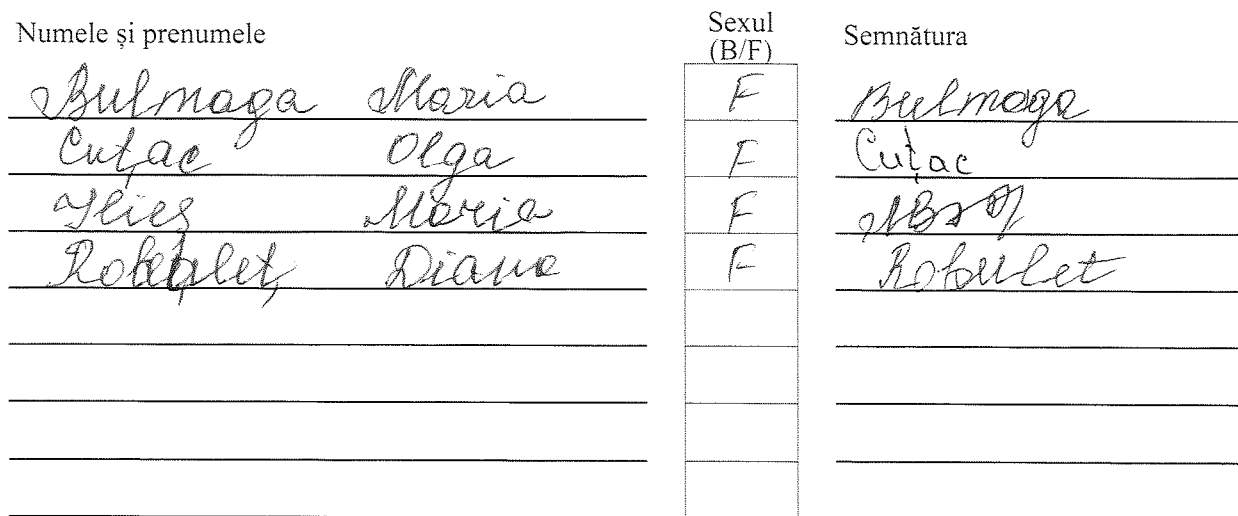 Numele și prenumele Sexul (B/F) Semnătura
Bulmaga Maria F Bulmaga
Cuțac Olga F Cuțac
Ilieș Maria F
Robuleț Diana F Robulet